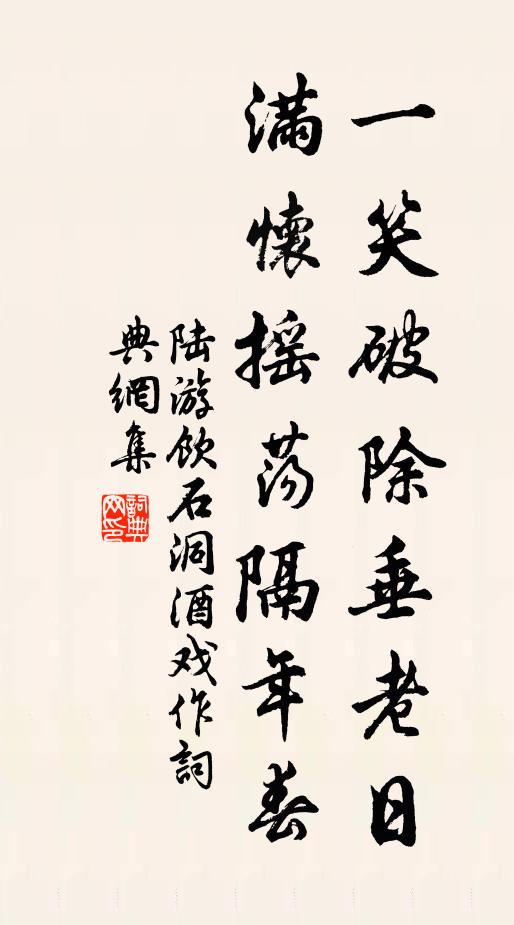 一笑破除垂老日
满懷摇荡隔年春
陆游饮石洞酒戏作詞
典網集
詞典
网印